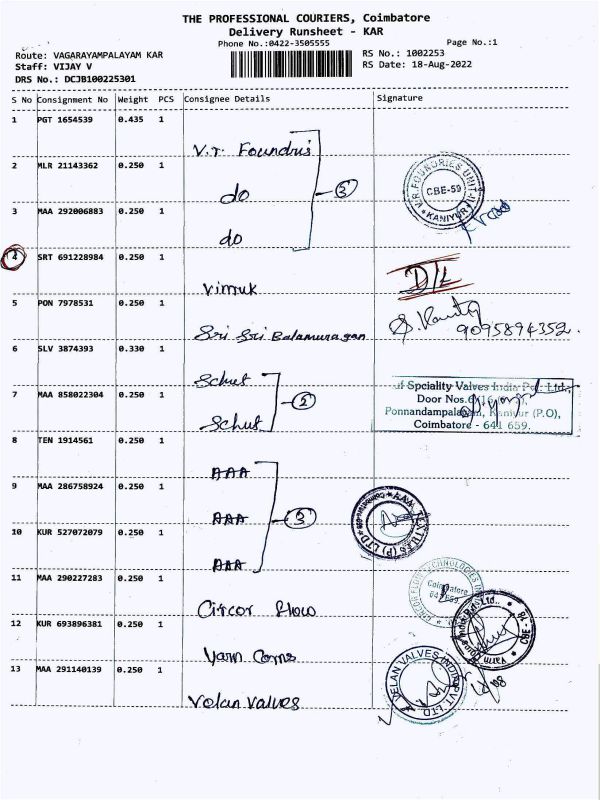 THE PROFESSIONAL COURIERS, Coimbatore
Delivery Runsheet - KAR
Phone No.:0422-3505555
Page No.:1
Route: VAGARAYAMPALAYAM KAR
RS No.: 1002253
Staff: VIJAY V
RS Date: 18-Aug-2022
DRS No.: DCJB100225301
S No Consignment No Weight PCS Consignee Details Signature
1 PGT 1654539 0.435 1
V.r. Foundris
2 MLR 21143362 0.250 1
do
3
CBE-59
KANIYUR
3 MAA 292006883 0.250 1
do
4 SRT 691228984 0.250 1
D/L
Vimuk
5 PON 7978531 0.250 1
9095894352.
Sri Sri Balamuragan
6 SLV 3874393 0.330 1
Schuf
7 MAA 858022304 0.250 1
Schuf
uf Spciality Valves India Pvt. Ltd.,
Door Nos.
Ponnandampalayam, Kaniyur (P.O),
Coimbatore - 641 659.
8 TEN 1914561 0.250 1
AAA
9 MAA 286758924 0.250 1
AAA
3
TEXTILES (P) LTD
10 KUR 527072079 0.250 1
AAA
11 MAA 290227283 0.250 1
Coimbatore
641 659.
Circor Flow
12 KUR 693896381 0.250 1
CBE - 18
Yarn Corns
13 MAA 291140139 0.250 1
VELAN VALVES INDIA PVT. LTD.
Velan Valves